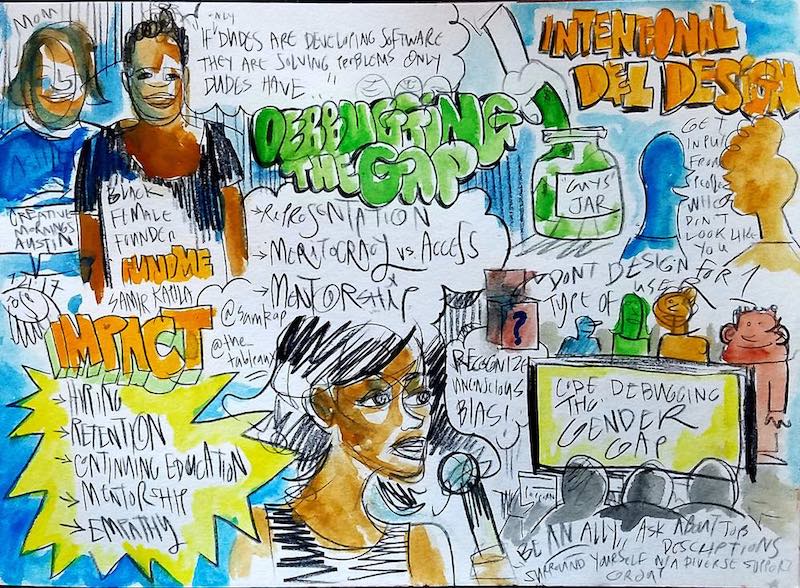 MOM
ONLY
IF DUDES ARE DEVELOPING SOFTWARE
THEY ARE SOLVING PROBLEMS ONLY
DUDES HAVE !!
INTENTIONAL
DEI DESIGN
DEBBUGGING
THE GAP
"GUYS"
JAR
GET
INPUT
FROM
PEOPLE
WHO
DON'T
LOOK LIKE
YOU
CREATIVE
MORNINGS
AUSTIN
BLACK
FEMALE
FOUNDER
#UNDME
→ REPRESENTATION
→ MERITOCRACY VS. ACCESS
→ MENTORSHIP
DONT DESIGN FOR 1
TYPE OF USER
?
IMPACT
→ HIRING
→ RETENTION
→ CONTINUING EDUCATION
→ MENTORSHIP
→ EMPATHY
@the_
RECOGNIZE
UNCONSCIOUS
BIAS!
CODE DEBUGGING
THE
GENDER
GAP
BE AN ALLY!! ASK ABOUT JOB
DESCRIPTIONS
SURROUND YOURSELF IN A DIVERSE SUPPORT
GROUP